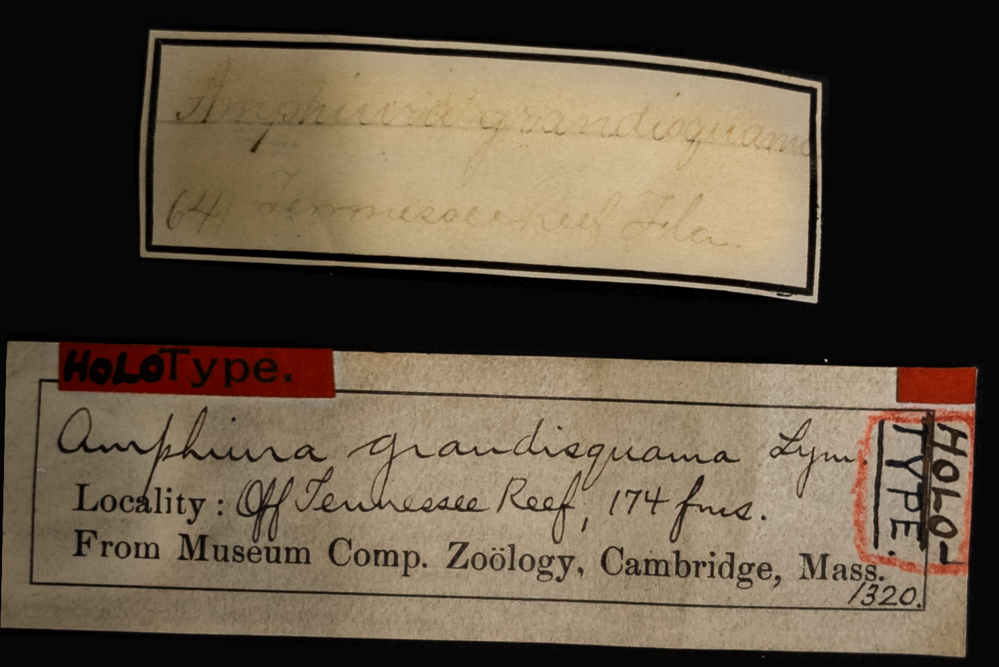 Amphiura grandisquama
641 Tennessee Reef Fla.
HOLOType.
Amphiura grandisquama Lym.
Locality: Off Tennessee Reef, 174 fms.
From Museum Comp. Zoölogy, Cambridge, Mass.
1320.
HOLO-
TYPE.